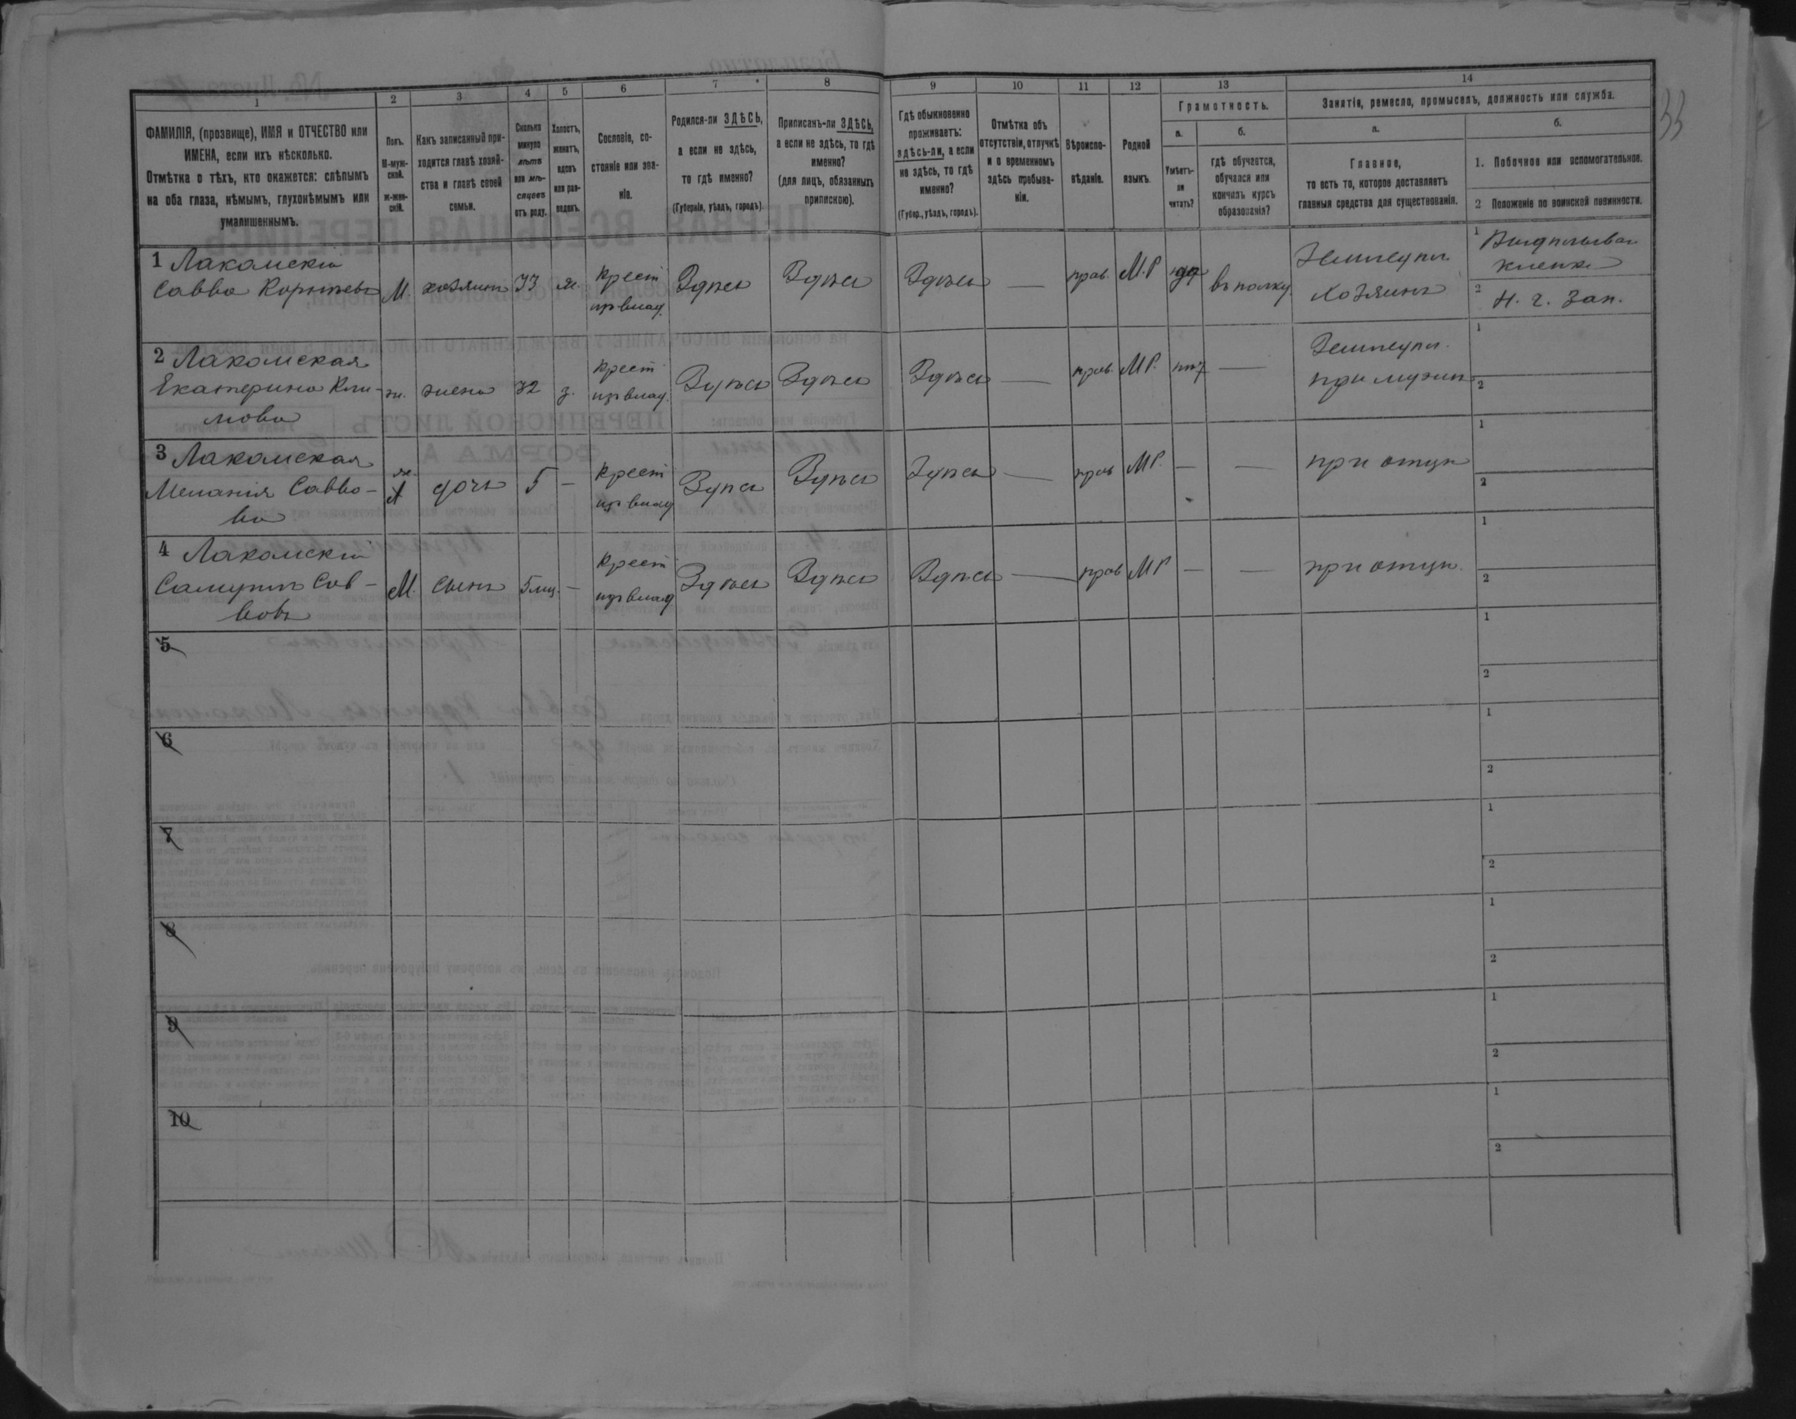 33
1 2 3 4 5 6 7 8 9 10 11 12 13 14
ФАМИЛІЯ, (прозвище), ИМЯ и ОТЧЕСТВО или
ИМЕНА, если ихъ нѣсколько.
Отмѣтка о тѣхъ, кто окажется: слѣпымъ
на оба глаза, нѣмымъ, глухонѣмымъ или
умалишеннымъ.
Полъ.
М-муж-
ской.
ж-жен-
скій.
Какъ записанный при-
ходится главѣ хозяй-
ства и главѣ своей
семьи.
Сколько
минуло
лѣтъ
или мѣ-
сяцевъ
отъ роду.
Холостъ,
женатъ,
вдовъ
или раз-
веденъ.
Сословіе, со-
стояніе или зва-
ніе.
Родился-ли ЗДѢСЬ,
а если не здѣсь,
то гдѣ именно?
(Губернія, уѣздъ, городъ).
Приписанъ-ли ЗДѢСЬ,
а если не здѣсь, то гдѣ
именно?
(для лицъ, обязанныхъ
припискою).
Гдѣ обыкновенно
проживаетъ:
здѣсь-ли, а если
не здѣсь, то гдѣ
именно?
(Губер., уѣздъ, городъ).
Отмѣтка объ
отсутствіи, отлучкѣ
и о временномъ
здѣсь пребыва-
ніи.
Вѣроиспо-
вѣданіе.
Родной
языкъ.
Грамотность.
а.
Умѣетъ-
ли
читать?
б.
гдѣ обучается,
обучался или
кончилъ курсъ
образованія?
Занятія, ремесло, промыселъ, должность или служба.
а.
Главное,
то есть то, которое доставляетъ
главныя средства для существованія.
б.
1. Побочное или вспомогательное.
2 Положеніе по воинской повинности.
1 Лакомскій
Савва
М. хозяинъ 33 ж. крест Здѣсь Здѣсь Здѣсь — прав. М.Р да въ полку
Хозяинъ
1
2 Н. ч. зап.
2 Лакомская
Екатерина Кли-
мова
ж. жена 32 з. крест Здѣсь Здѣсь Здѣсь — прав. М.Р. нѣт —
1
2
3 Лакомская
Меланія Савво-
ва
ж дочь 5 — крест Здѣсь Здѣсь Здѣсь — прав М.Р. — — при отцѣ
1
2
4 Лакомскій
Самуилъ Сав-
вовъ
М. сынъ 5 мц. — крест Здѣсь Здѣсь Здѣсь — прав М.Р — — при отцѣ
1
2
5
1
2
6
1
2
7
1
2
8
1
2
9
1
2
10
1
2